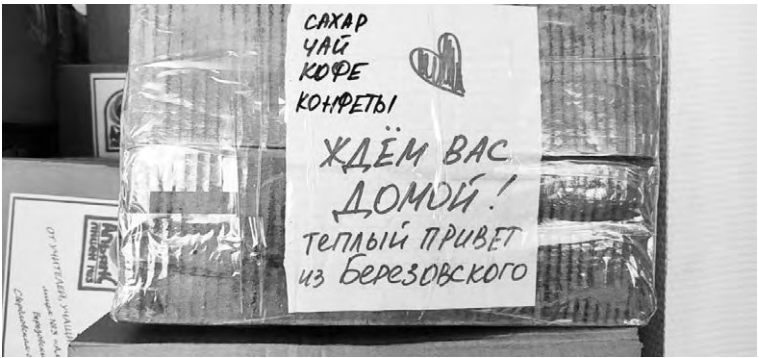 САХАР
ЧАЙ
КОФЕ
КОНФЕТЫ
ЖДЁМ ВАС
ДОМОЙ!
ТЕПЛЫЙ ПРИВЕТ
ИЗ БЕРЕЗОВСКОГО
ОТ УЧИТЕЛЕЙ, УЧАЩ